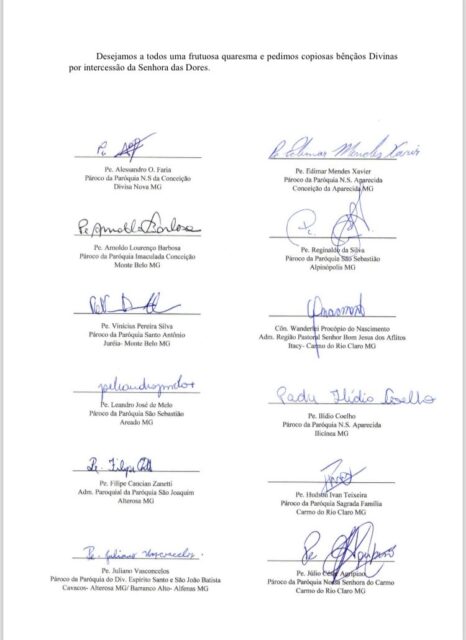 Desejamos a todos uma frutuosa quaresma e pedimos copiosas bênçãos Divinas
por intercessão da Senhora das Dores.
Pe. Alessandro O. Faria
Pároco da Paróquia N.S da Conceição
Divisa Nova MG
Pe Edimar Mendes Xavier
Pe. Edimar Mendes Xavier
Pároco da Paróquia N.S. Aparecida
Conceição da Aparecida MG
Pe Arnoldo Barbosa
Pe. Arnoldo Lourenço Barbosa
Pároco da Paróquia Imaculada Conceição
Monte Belo MG
Pe. Reginaldo da Silva
Pároco da Paróquia São Sebastião
Alpinópolis MG
Pe. Vinícius Pereira Silva
Pároco da Paróquia Santo Antônio
Juréia- Monte Belo MG
Côn. Wanderlei Procópio do Nascimento
Adm. Região Pastoral Senhor Bom Jesus dos Aflitos
Itacy- Carmo do Rio Claro MG
Pe. Leandro José de Melo
Pároco da Paróquia São Sebastião
Areado MG
Padre Ilídio Coelho
Pe. Ilídio Coelho
Pároco da Paróquia N.S. Aparecida
Ilicínea MG
Pe. Filipe
Pe. Filipe Cancian Zanetti
Adm. Paroquial da Paróquia São Joaquim
Alterosa MG
Pe. Hudson Ivan Teixeira
Pároco da Paróquia Sagrada Família
Carmo do Rio Claro MG
Pe. Juliano Vasconcelos.
Pe. Juliano Vasconcelos
Pároco da Paróquia do Div. Espírito Santo e São João Batista
Cavacos- Alterosa MG/ Barranco Alto- Alfenas MG
Pe Agripino
Pe. Júlio César Agripino
Pároco da Paróquia Nossa Senhora do Carmo
Carmo do Rio Claro MG